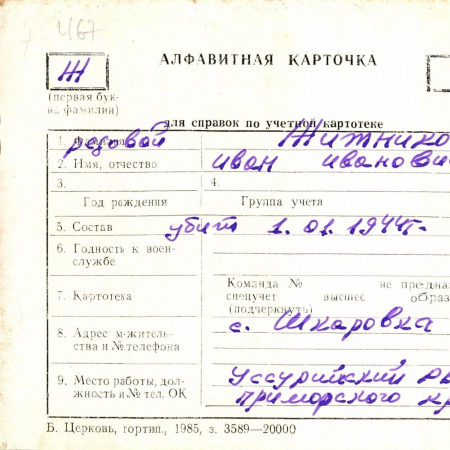 467
Ж
АЛФАВИТНАЯ КАРТОЧКА
(первая бук-
ва фамилии)
для справок по учетной картотеке
1. Фамилия рядовой Житнико
2. Имя, отчество Иван Иванови
3. 4.
Год рождения Группа учета
5. Состав убит 1.01.1944г.
6. Годность к воен-
службе
7. Картотека
Команда № не предна
спецучет высшее образ
(подчеркнуть)
8. Адрес м-житель-
ства и № телефона
с. Шкаровка
9. Место работы, дол-
жность и № тел. ОК
Уссурийский
Приморского кр
Б. Церковь, гортип., 1985, з. 3589—20000